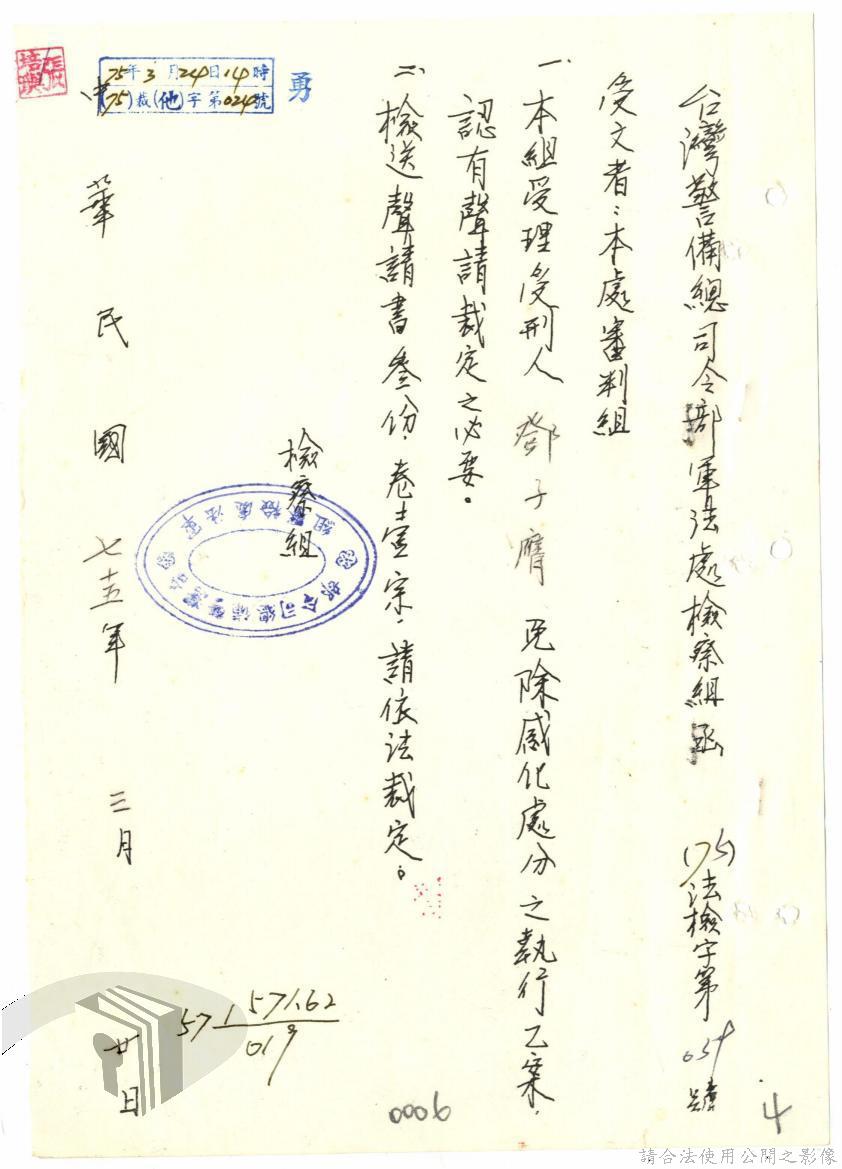 台灣警備總司令部軍法處檢察組函 (75)法檢字第039號
受文者:本處審判組
一、本組受理受刑人鄧子膺免除感化處分之執行乙案,
認有聲請裁定之必要。
二、檢送聲請書叁份,卷壹宗,請依法裁定。
檢察組
中華民國七十五年三月廿日
勇
75年3月24日14時
(75)裁(他)字第024號
571 571.62
019
0006
4
請合法使用公開之影像